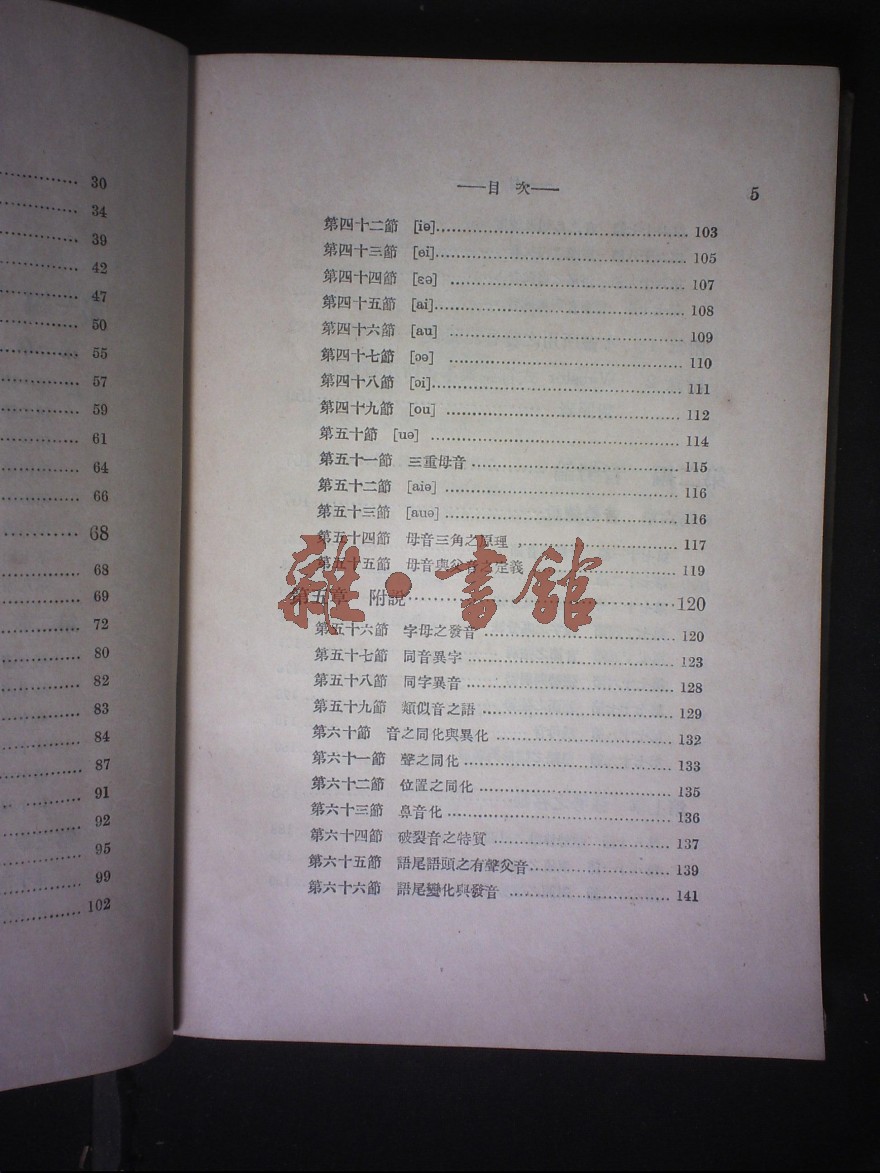 30
34
39
42
47
50
55
57
59
61
64
66
68
68
69
72
80
82
83
84
87
91
92
95
99
102
——目 次—— 5
第四十二節 [iə] 103
第四十三節 [ei] 105
第四十四節 [ɛə] 107
第四十五節 [ai] 108
第四十六節 [au] 109
第四十七節 [ɔə] 110
第四十八節 [ɔi] 111
第四十九節 [ou] 112
第五十節 [uə] 114
第五十一節 三重母音 115
第五十二節 [aiə] 116
第五十三節 [auə] 116
第五十四節 母音三角之原理 117
第五十五節 母音與父音之定義 119
雜·書館
第五章 附說 120
第五十六節 字母之發音 120
第五十七節 同音異字 123
第五十八節 同字異音 128
第五十九節 類似音之語 129
第六十節 音之同化與異化 132
第六十一節 聲之同化 133
第六十二節 位置之同化 135
第六十三節 鼻音化 136
第六十四節 破裂音之特質 137
第六十五節 語尾語頭之有聲父音 139
第六十六節 語尾變化與發音 141